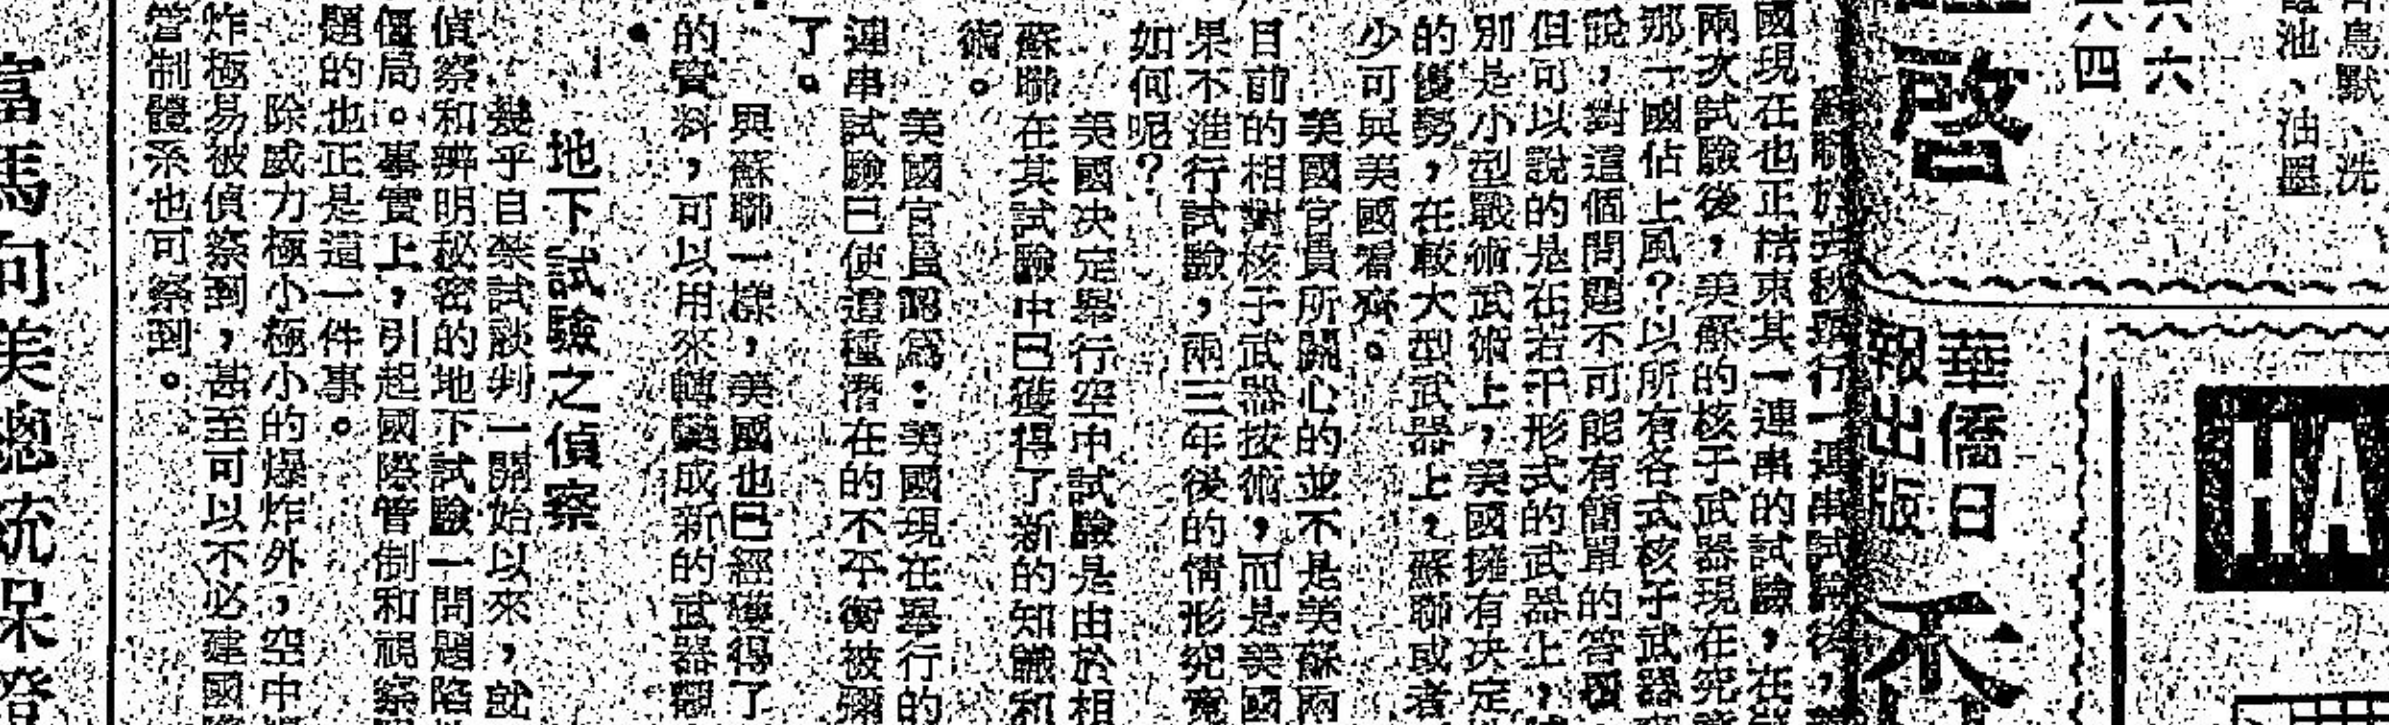 蘇聯於去秋舉行一連串試驗後，
國現在也正結束其一連串的試驗，在
兩次試驗後，美蘇的核子武器現在究
那一國佔上風？以所有各式核子武器
說，對這個問題不可能有簡單的答覆
但可以說的是在若干形式的武器上，
別是小型戰術武術上，美國擁有決定
的優勢，在較大型武器上，蘇聯或者
少可與美國看齊。
美國官員所關心的並不是美蘇兩
目前的相對核子武器技術，而是美國
果不進行試驗，兩三年後的情形究竟
如何呢？
美國決定舉行空中試驗是由於相
蘇聯在其試驗中已獲得了新的知識和
術。
美國官員認爲：美國現在舉行的
連串試驗已使這種潛在的不平衡被彌
了。
與蘇聯一樣，美國也已經獲得了
的資料，可以用來轉變成新的武器觀
地下試驗之偵察
幾乎自禁試談判一開始以來，就
偵察和辨明秘密的地下試驗一問題陷
僵局。事實上，引起國際管制和視察
題的也正是這一件事。
除威力極小極小的爆炸外，空中
炸極易被偵察到，甚至可以不必建國
管制體系也可察到。
啓
六六
六四
鳥默、洗
池、油墨
華僑日
報出版
HA
富馬向美總統保證